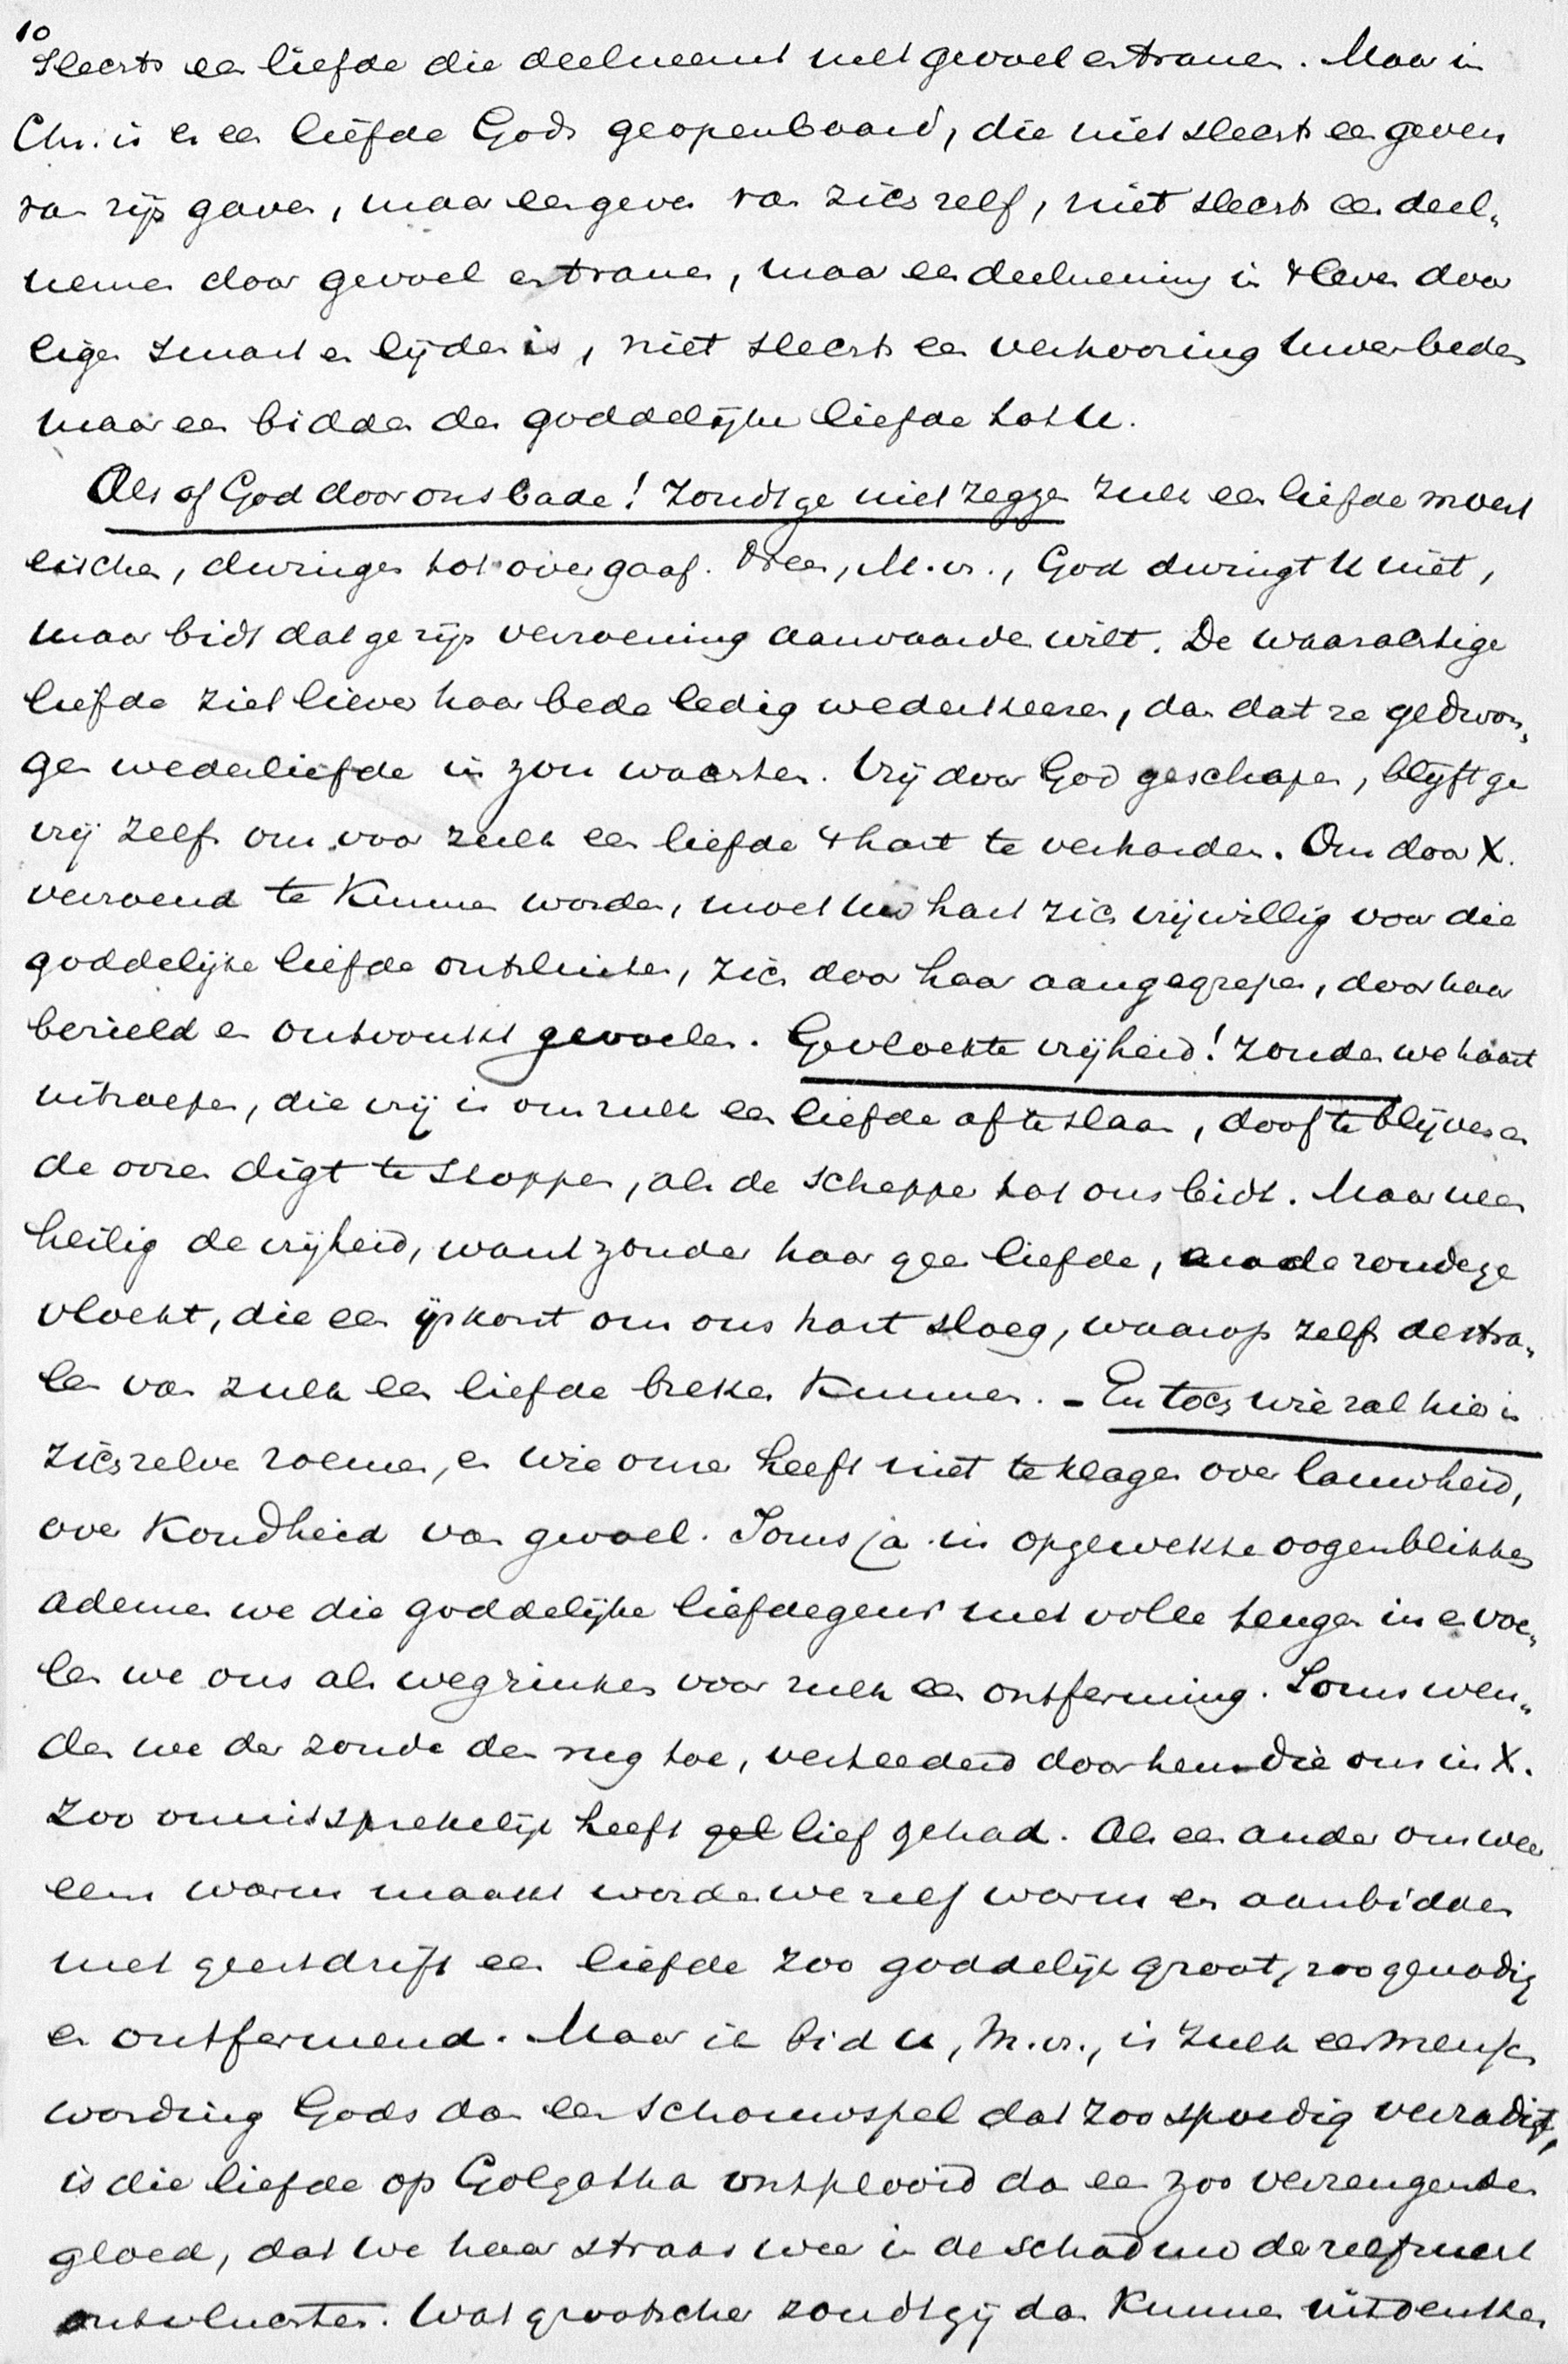 10
Slechts een liefde die deelneemt met gevoel en tranen. Maar in
Chr. is er een liefde Gods geopenbaard, die niet slechts een geven
van zijn gaven, maar een geven van zich zelf, niet slechts een deel„
nemen door gevoel en tranen, maar een deelneming in 't leven door
eigen smart en lijden is, niet slechts een verhooring Uwer beden
maar een bidden der goddelijke liefde tot U.
Als of God door ons bade! Zoudt ge niet zeggen zulk een liefde moest
eischen, dwingen tot overgaaf. Neen, M. vr., God dwingt U niet,
maar bidt dat ge zijn verzoening aanvaarden wilt. De waarachtige
liefde ziet liever haar bede ledig wederkeeren, dan dat ze gedwon„
gen wederliefde in zou wachten. Vrij door God geschapen, blijft ge
vrij zelfs om voor zulk een liefde 't hart te verharden. Om door X.
verzoend te kunnen worden, moet uw hart zich vrijwillig voor die
goddelijke liefde ontsluiten, zich door haar aangegrepen, door haar
bezield en ontvonkt gevoelen. Gevloekte vrijheid! zouden we haast
uitroepen, die vrij is om zulk een liefde af te slaan, doof te blijven en
de ooren digt te stoppen, als de Schepper tot ons bidt. Maar neen
heilig de vrijheid, want zonder haar geen liefde, maar de zonde ge
vloekt, die een ijskorst om ons hart sloeg, waarop zelfs de stra„
len van zulk een liefde breken kunnen. - En toch wie zal hier in
zichzelve roemen, en wie onzer heeft niet te klagen over lauwheid,
over koudheid van gevoel. Soms ja in opgewekte oogenblikken
ademen we die goddelijke liefdegeur met volle teugen in en voe„
len we ons als wegzinken voor zulk een ontferming. Soms wen„
den we der zonde den rug toe, verteederd door hem die ons in X.
zoo onuitsprekelijk heeft gel lief gehad. Als een ander ons weer
eens warm maakt worden we zelf warm en aanbidden
met geestdrift een liefde zoo goddelijk groot, zoo genadig
en ontfermend. Maar ik bid U, M. vr., is zulk een mensch
wording Gods dan een schouwspel dat zoo spoedig verzadigt,
is die liefde op Golgotha ontplooid dan een zoo verzengenden
gloed, dat we haar straks weer in de schaduw der zelfzucht
ontvluchten. Wat grootscher zoudt gij dan kunnen uitdenken